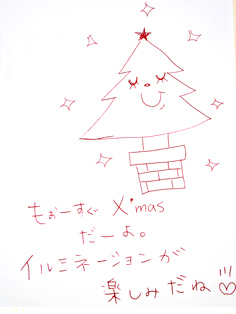 もぉーすぐ X'mas
だーよ。
イルミネーションが
楽しみだね♡